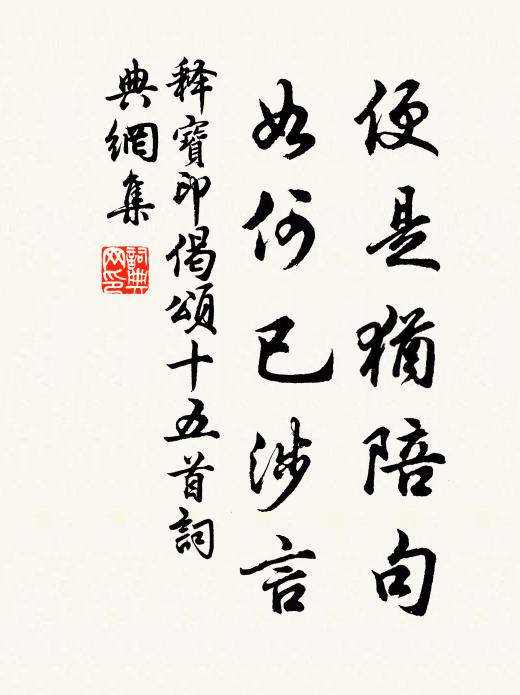 便是犹陪句
如何已涉言
释寶印偈頌十五首詞
典網集
詞典网印